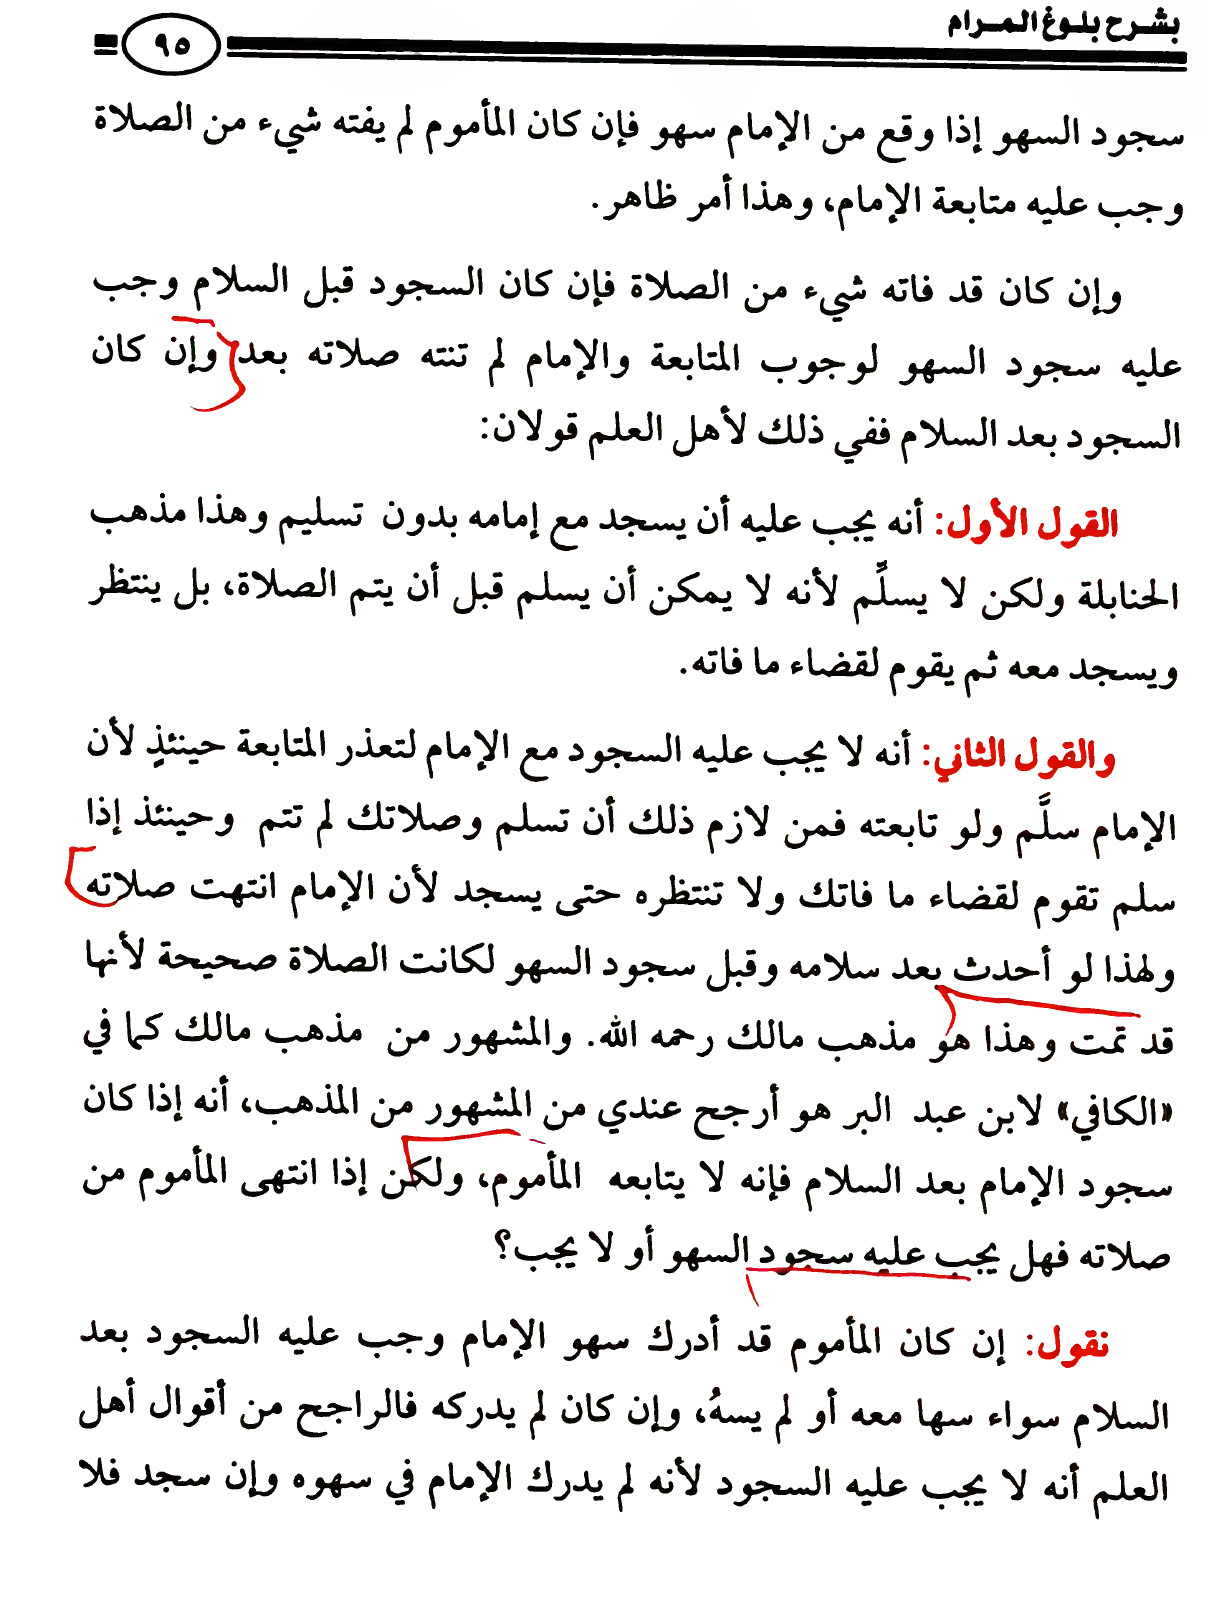 بشرح بلوغ المرام
٩٥
سجود السهو إذا وقع من الإمام سهو فإن كان المأموم لم يفته شيء من الصلاة
وجب عليه متابعة الإمام، وهذا أمر ظاهر.
وإن كان قد فاته شيء من الصلاة فإن كان السجود قبل السلام وجب
عليه سجود السهو لوجوب المتابعة والإمام لم تنته صلاته بعد وإن كان
السجود بعد السلام ففي ذلك لأهل العلم قولان:
القول الأول: أنه يجب عليه أن يسجد مع إمامه بدون تسليم وهذا مذهب
الحنابلة ولكن لا يسلِّم لأنه لا يمكن أن يسلم قبل أن يتم الصلاة، بل ينتظر
ويسجد معه ثم يقوم لقضاء ما فاته.
والقول الثاني: أنه لا يجب عليه السجود مع الإمام لتعذر المتابعة حينئذٍ لأن
الإمام سلَّم ولو تابعته فمن لازم ذلك أن تسلم وصلاتك لم تتم وحينئذ إذا
سلم تقوم لقضاء ما فاتك ولا تنتظره حتى يسجد لأن الإمام انتهت صلاته
ولهذا لو أحدث بعد سلامه وقبل سجود السهو لكانت الصلاة صحيحة لأنها
قد تمت وهذا هو مذهب مالك رحمه الله. والمشهور من مذهب مالك كما في
«الكافي» لابن عبد البر هو أرجح عندي من المشهور من المذهب، أنه إذا كان
سجود الإمام بعد السلام فإنه لا يتابعه المأموم، ولكن إذا انتهى المأموم من
صلاته فهل يجب عليه سجود السهو أو لا يجب؟
نقول: إن كان المأموم قد أدرك سهو الإمام وجب عليه السجود بعد
السلام سواء سها معه أو لم يسهُ، وإن كان لم يدركه فالراجح من أقوال أهل
العلم أنه لا يجب عليه السجود لأنه لم يدرك الإمام في سهوه وإن سجد فلا